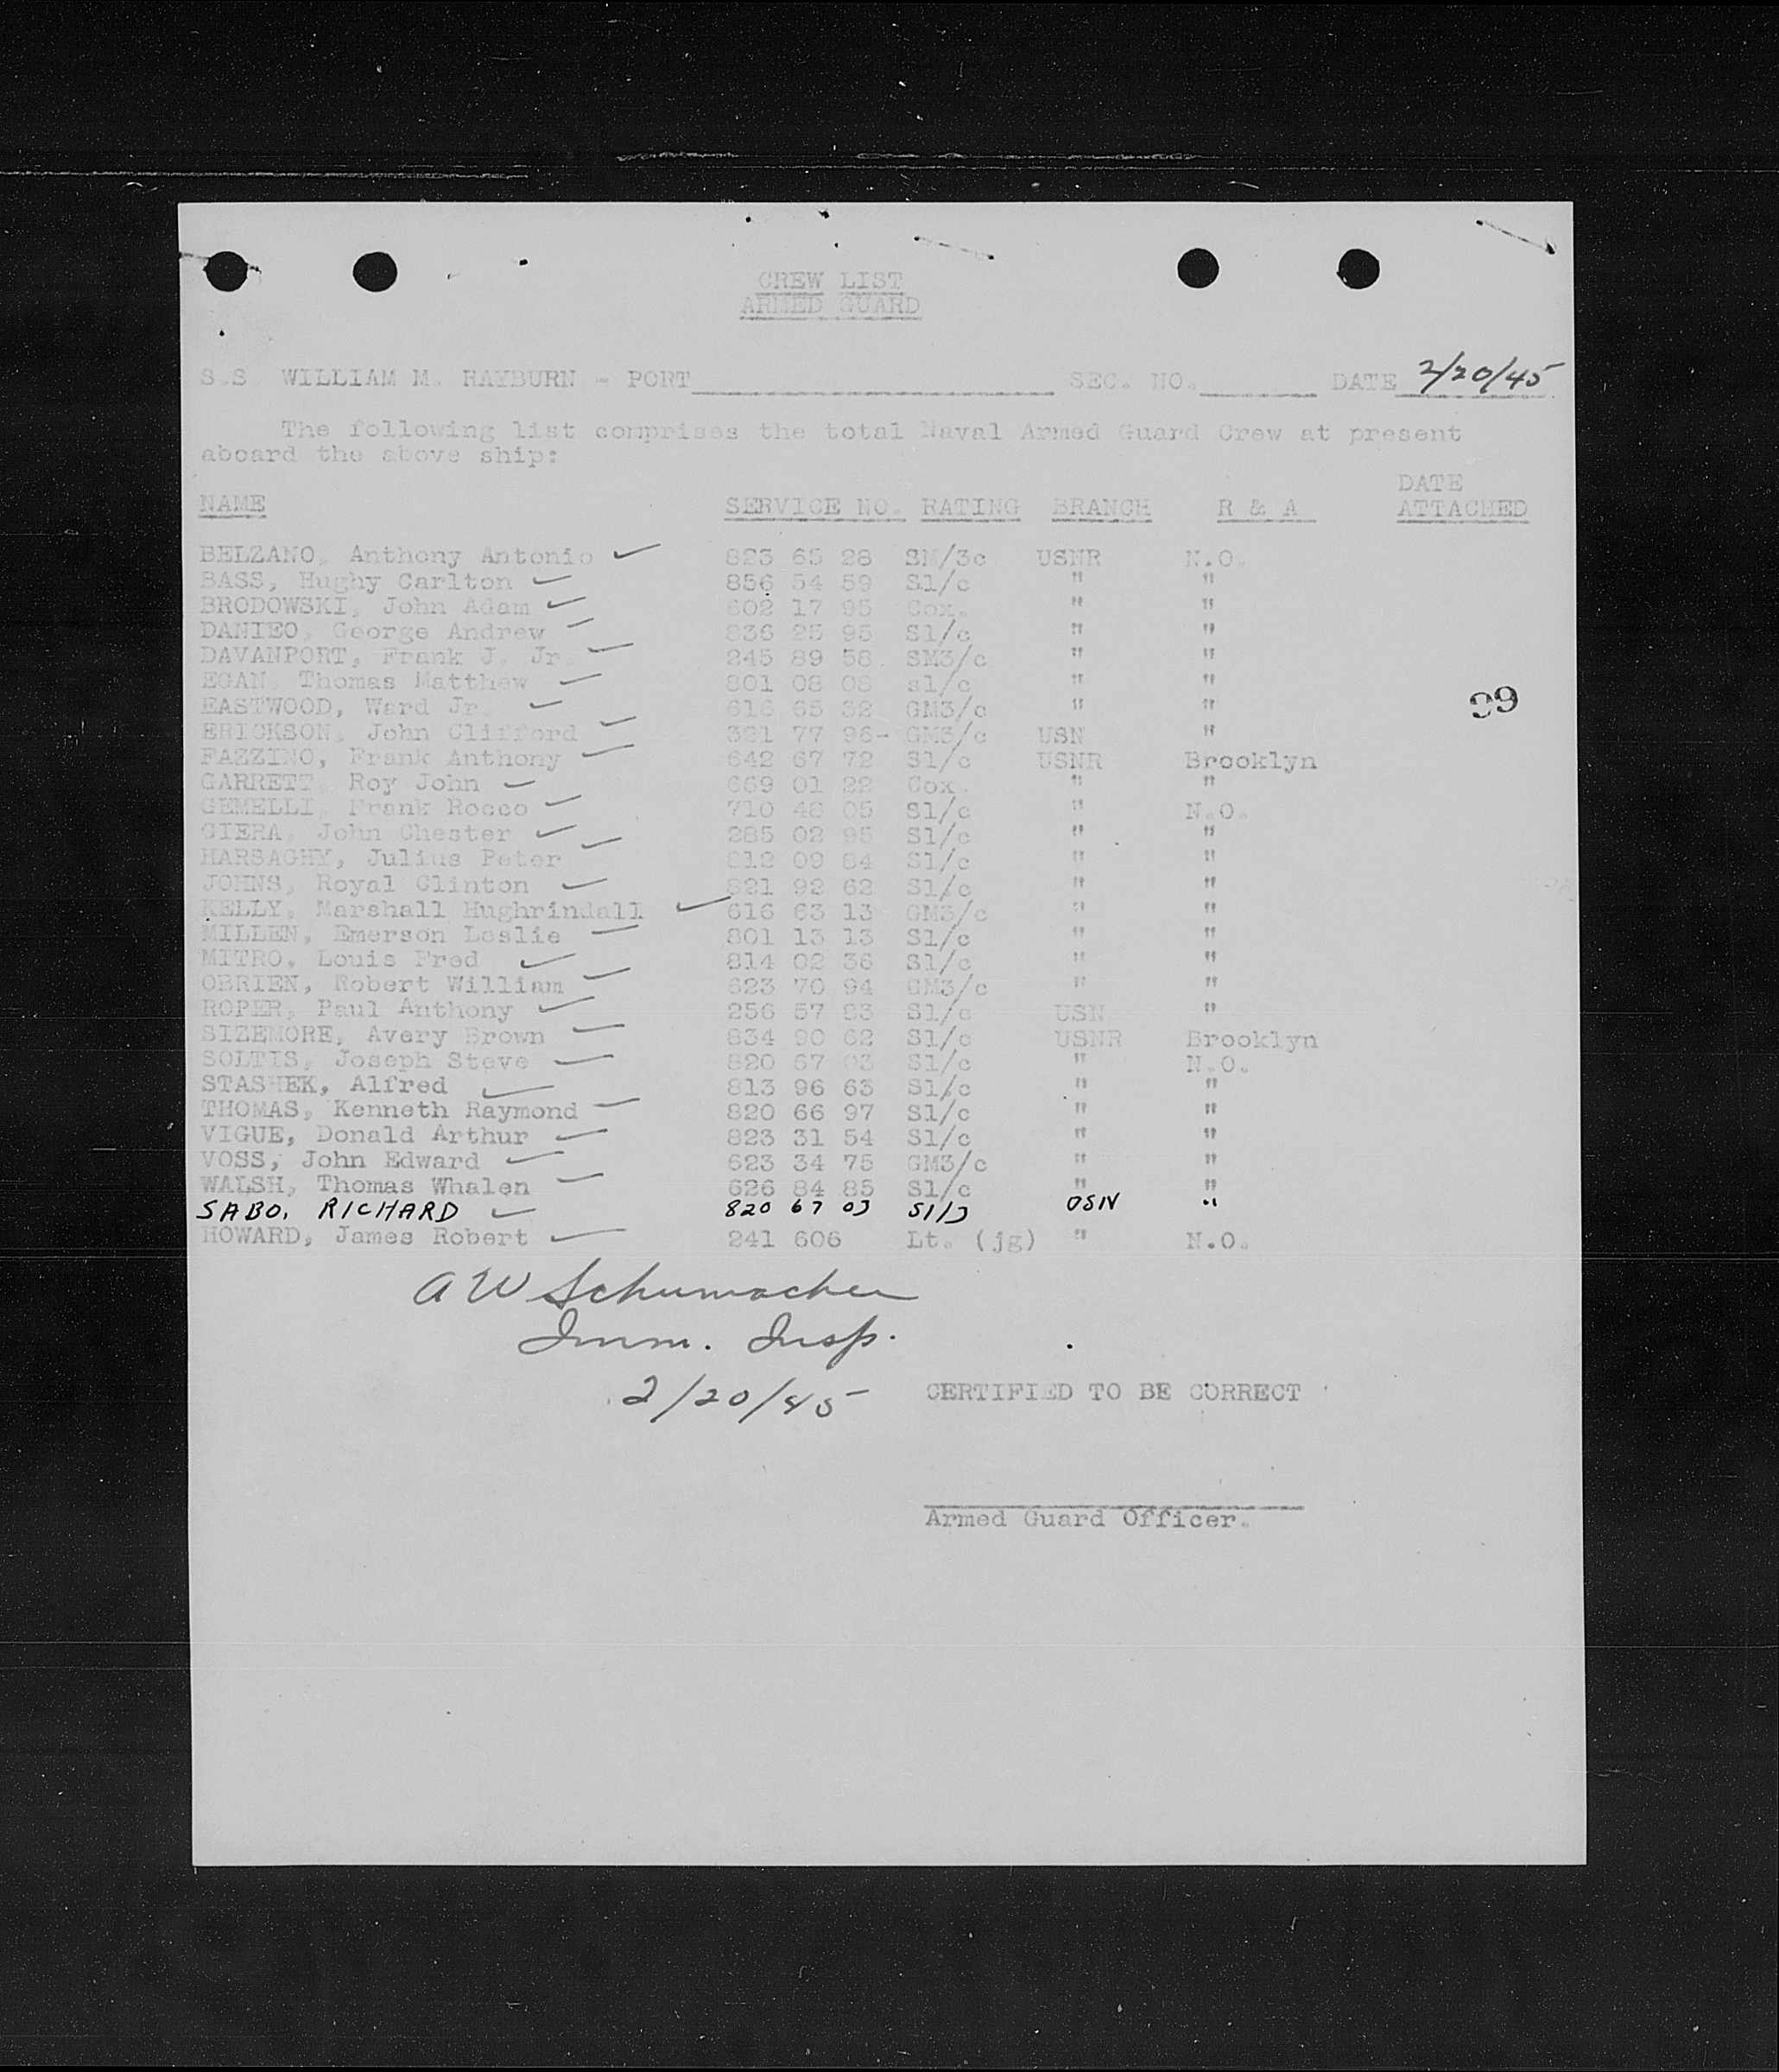 CREW LIST
ARMED GUARD
S.S. WILLIAM M. RAYBURN - PORT SEC. NO. DATE 2/20/45
The following list comprises the total Naval Armed Guard Crew at present
aboard the above ship:
NAME SERVICE NO. RATING BRANCH R & A DATE ATTACHED
BELZANO, Anthony Antonio ✓ 823 65 28 SM/3c USNR N.O.
BASS, Hughy Carlton ✓ 856 54 59 S1/c " "
BRODOWSKI, John Adam ✓ 602 17 95 Cox. " "
DANIEO, George Andrew ✓ 836 25 95 S1/c " "
DAVANPORT, Frank J. Jr. ✓ 245 89 58 SM3/c " "
EGAN, Thomas Matthew ✓ 801 08 08 s1/c " "
EASTWOOD, Ward Jr. ✓ 616 65 32 GM3/c " "
99
ERICKSON, John Clifford ✓ 77 96- GM3/c USN "
FAZZINO, Frank Anthony ✓ 642 67 72 S1/c USNR Brooklyn
GARRETT, Roy John ✓ 669 01 22 Cox. " "
GEMELLI, Frank Rocco ✓ 710 48 05 S1/c " N.O.
GIERA, John Chester ✓ 285 02 95 S1/c " "
HARSAGHY, Julius Peter ✓ 812 09 84 S1/c " "
JOHNS, Royal Clinton ✓ 821 92 62 S1/c " "
KELLY, Marshall Hughrindall ✓ 616 63 13 GM3/c " "
MILLEN, Emerson Leslie ✓ 801 13 13 S1/c " "
MITRO, Louis Fred ✓ 814 02 36 S1/c " "
OBRIEN, Robert William ✓ 623 70 94 GM3/c " "
ROPER, Paul Anthony ✓ 256 57 83 S1/c USN "
SIZEMORE, Avery Brown ✓ 834 90 62 S1/c USNR Brooklyn
SOLTIS, Joseph Steve ✓ 820 67 03 S1/c " N.O.
STASHEK, Alfred ✓ 813 96 63 S1/c " "
THOMAS, Kenneth Raymond ✓ 820 66 97 S1/c " "
VIGUE, Donald Arthur ✓ 823 31 54 S1/c " "
VOSS, John Edward ✓ 623 34 75 GM3/c " "
WALSH, Thomas Whalen ✓ 626 84 85 S1/c " "
SABO, RICHARD ✓ 820 67 03 USN "
HOWARD, James Robert ✓ 241 606 Lt. (jg) " N.O.
A W Schumacher
Imm. Insp.
2/20/45
CERTIFIED TO BE CORRECT
Armed Guard Officer.